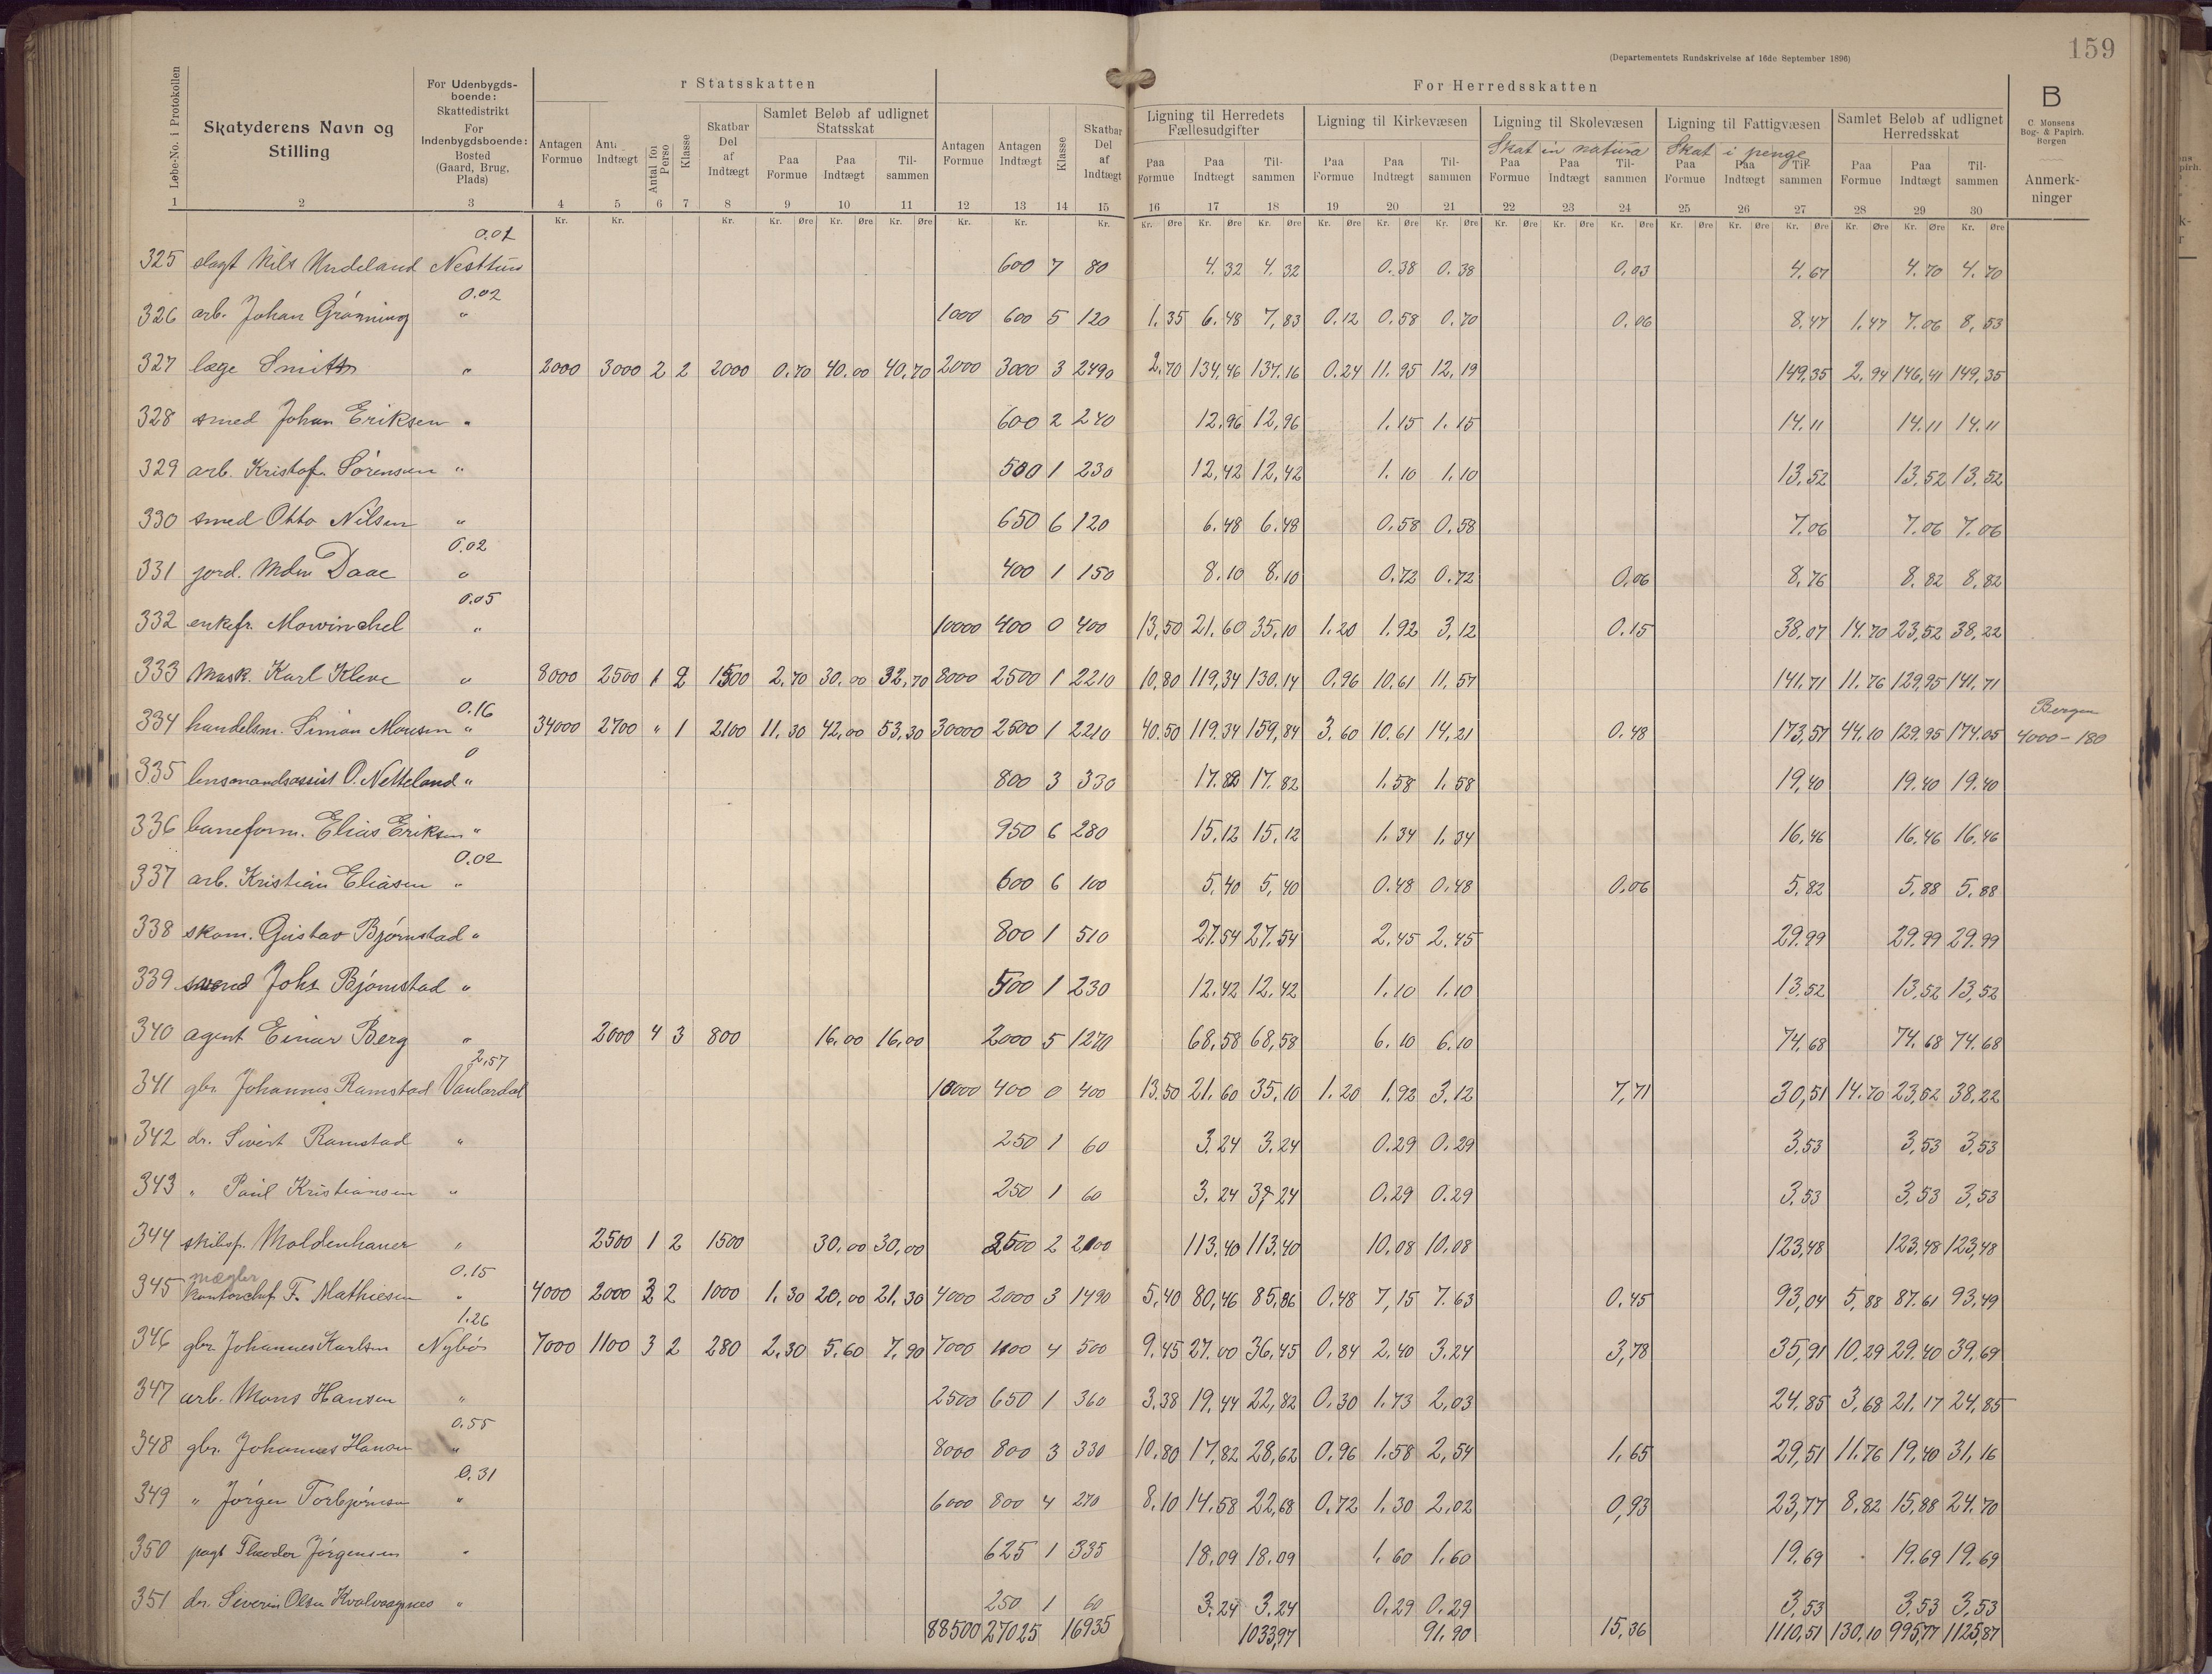 159
(Departementets Rundskrivelse af 16de September 1896)
r Statsskatten
For Herredsskatten
B
C. Monsens Bog- & Papirh. Bergen
Løbe-No. i Protokollen
Skatyderens Navn og Stilling
For Udenbygdsboende: Skattedistrikt For Indenbygdsboende: Bosted (Gaard, Brug, Plads)
Antagen Formue
Indtægt
Antal for
Klasse
Skatbar Del af Indtægt
Samlet Beløb af udlignet Statsskat
Paa Formue Paa Indtægt Tilsammen
Antagen Formue
Antagen Indtægt
Klasse
Skatbar Del af Indtægt
Ligning til Herredets Fællesudgifter
Paa Formue Paa Indtægt Tilsammen
Ligning til Kirkevæsen
Paa Formue Paa Indtægt Tilsammen
Ligning til Skolevæsen
Skat in natura
Paa Formue Paa Indtægt Tilsammen
Ligning til Fattigvæsen
Skat i penge
Paa Formue Paa Indtægt Tilsammen
Samlet Beløb af udlignet Herredsskat
Paa Formue Paa Indtægt Tilsammen
Anmerkninger
1 2 3 4 5 6 7 8 9 10 11 12 13 14 15 16 17 18 19 20 21 22 23 24 25 26 27 28 29 30
0.01
325 slagt Nils Undeland Nesttun 600 7 80 4.32 4.32 0.38 0.38 0.03 4.67 4.70 4.70
0.02
326 arb. Johan Grønning " 1000 600 5 120 1.35 6.48 7,83 0.12 0.58 0.70 0.06 8.47 1.47 7.06 8,53
327 læge Smith " 2000 3000 2 2 2000 0.70 40.00 40.70 2000 3000 3 2490 2.70 134,46 137.16 0.24 11.95 12,19 149,35 2,94 146,41 149,35
328 smed Johan Eriksen " 600 2 240 12,96 12,96 1.15 1.15 14.11 14.11 14.11
329 arb. Kristof. Sørensen " 500 1 230 12,42 12,42 1.10 1,10 13,52 13,52 13,52
330 smed Otto Nilsen " 650 6 120 6.48 6.48 0.58 0.58 7.06 7.06 7.06
0.02
331 jord. Mdm Daae " 400 1 150 8.10 8.10 0.72 0.72 0.06 8,76 8.82 8,82
0.05
332 enkefr. Mowinckel " 10000 400 0 400 13,50 21.60 35,10 1.20 1.92 3,12 0.15 38,07 14.70 23,52 38,22
333 Mask. Karl Kleve " 8000 2500 1 2 1500 2.70 30.00 32,70 8000 2500 1 2210 10,80 119,34 130.14 0.96 10.61 11.57 141.71 11.76 129,95 141,71
0.16
334 handelsm. Simon Monsen " 34000 2700 " 1 2100 11.30 42,00 53,30 30000 2500 1 2210 40.50 119.34 159,84 3,60 10.61 14,21 0.48 173,57 44,10 129.95 174.05 Bergen 4000-180
0
335 lensmandsassist O. Netteland " 800 3 330 17.82 17.82 1.58 1.58 19,40 19.40 19.40
336 baneform. Elias Eriksen " 950 6 280 15,12 15,12 1.34 1.34 16,46 16,46 16,46
0.02
337 arb. Kristian Eliasen " 600 6 100 5,40 5,40 0.48 0.48 0.06 5.82 5.88 5.88
338 skom. Gustav Bjørnstad " 800 1 510 27.54 27.54 2.45 2.45 29.99 29.99 29.99
339 svend Johs Bjørnstad " 500 1 230 12.42 12.42 1.10 1.10 13,52 13,52 13,52
340 agent Einar Berg " 2000 4 3 800 16.00 16,00 2000 5 1270 68,58 68,58 6.10 6.10 74,68 74.68 74.68
2,57
341 gbr. Johannes Ramstad 10000 400 0 400 13.50 21.60 35,10 1.20 1.92 3.12 7,71 30,51 14.70 23,52 38,22
342 dr. Sivert Ramstad " 250 1 60 3.24 3.24 0.29 0.29 3,53 3,53 3,53
343 " Paul Kristiansen " 250 1 60 3.24 3.24 0.29 0.29 3,53 3,53 3,53
344 skibsf. Moldenhauer " 2500 1 2 1500 30,00 30,00 2500 2 2100 113,40 113,40 10.08 10.08 123,48 123,48 123,48
mægler 0.15
345 kontorchf. F. Mathiesen " 4000 2000 3 2 1000 1.30 20,00 21,30 4000 2000 3 1490 5,40 80,46 85,86 0.48 7,15 7.63 0.45 93,04 5,88 87.61 93,49
1.26
346 gbr. Johannes Karlsen Nybø 7000 1100 3 2 280 2.30 5.60 7.90 7000 1100 4 500 9,45 27.00 36,45 0.84 2.40 3.24 3,78 35,91 10.29 29.40 39,69
347 arb. Mons Hansen " 2500 650 1 360 3.38 19,44 22,82 0.30 1.73 2,03 24.85 3,68 21,17 24,85
0.55
348 gbr. Johannes Hansen " 8000 800 3 330 10.80 17,82 28,62 0.96 1.58 2,54 1,65 29,51 11.76 19,40 31,16
0.31
349 " Jørgen Torbjørnsen " 6000 800 4 270 8.10 14.58 22,68 0,72 1.30 2,02 0,93 23,77 8.82 15,88 24.70
350 pagt Theodor Jørgensen " 625 1 335 18.09 18.09 1.60 1.60 19,69 19.69 19,69
351 dr. Severin Olsen Kvalvaagnes " 250 1 60 3.24 3.24 0.29 0.29 3,53 3,53 3,53
88500 27025 16935 1033,97 91,90 15,36 1110,51 130,10 995,77 1125,87